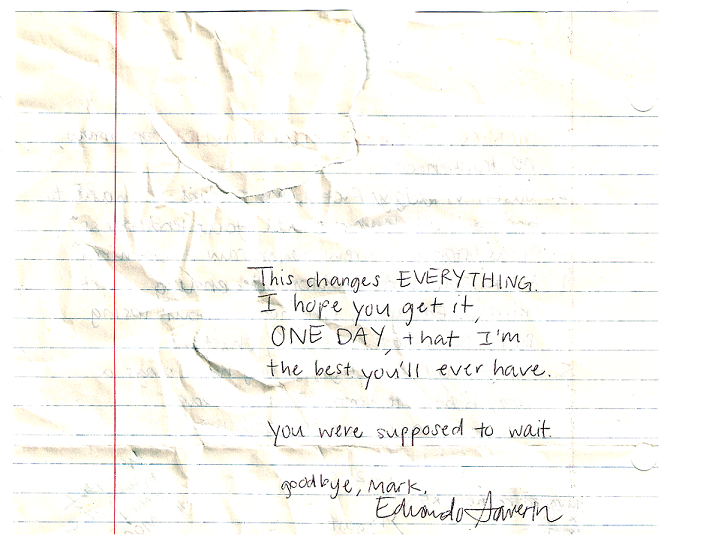 This changes EVERYTHING.
I hope you get it,
ONE DAY, that I'm
the best you'll ever have.
you were supposed to wait.
goodbye, Mark.
Eduardo Saverin